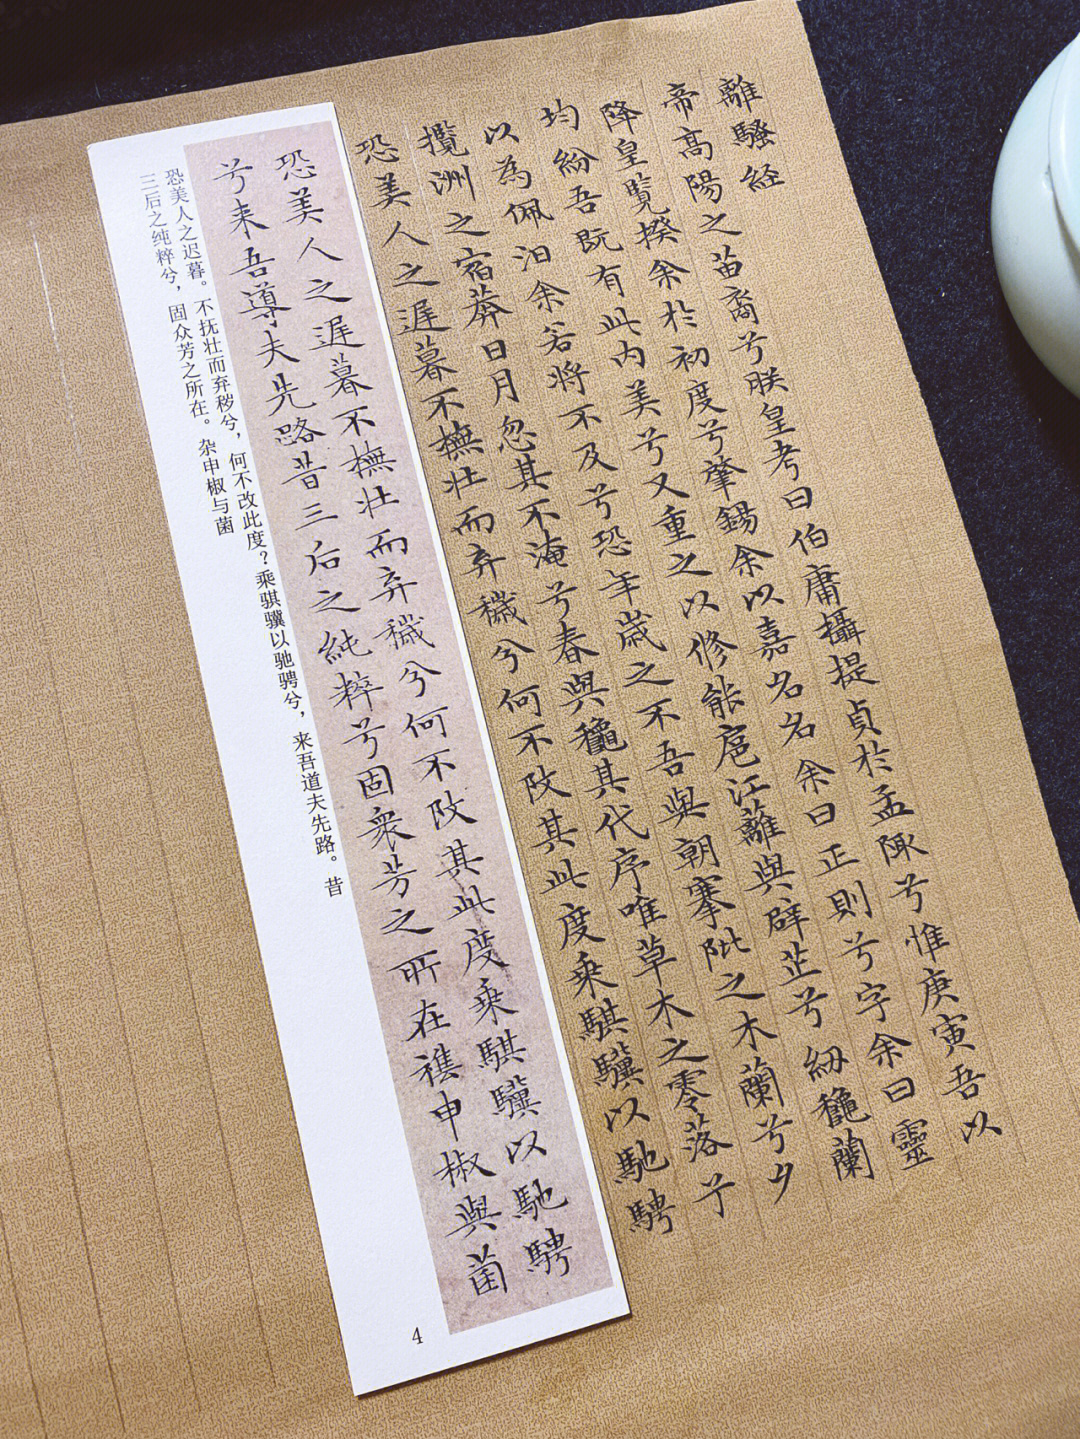 離騷経
帝高陽之苗裔兮朕皇考曰伯庸攝提貞於孟陬兮惟庚寅吾以
降皇覧揆余於初度兮肇錫余以嘉名名余曰正則兮字余曰靈
均紛吾既有此内美兮又重之以修能扈江離與辟芷兮紉龝蘭
以為佩汨余若将不及兮恐年歳之不吾與朝搴阰之木蘭兮夕
攬洲之宿莽日月忽其不淹兮春與龝其代序唯草木之零落兮
恐美人之遲暮不撫壮而弃穢兮何不改其此度乗騏驥以馳騁
恐美人之遲暮不撫壮而弃穢兮何不改其此度乗騏驥以馳騁
兮来吾導夫先路昔三后之純粹兮固衆芳之所在襍申椒與菌
恐美人之迟暮。不抚壮而弃秽兮，何不改此度？乘骐骥以驰骋兮，来吾道夫先路。昔
三后之纯粹兮，固众芳之所在。杂申椒与菌
4